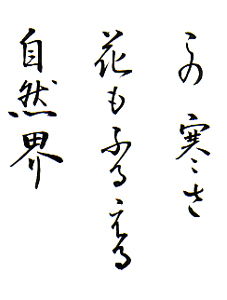 この寒さ
花もふるえる
自然界